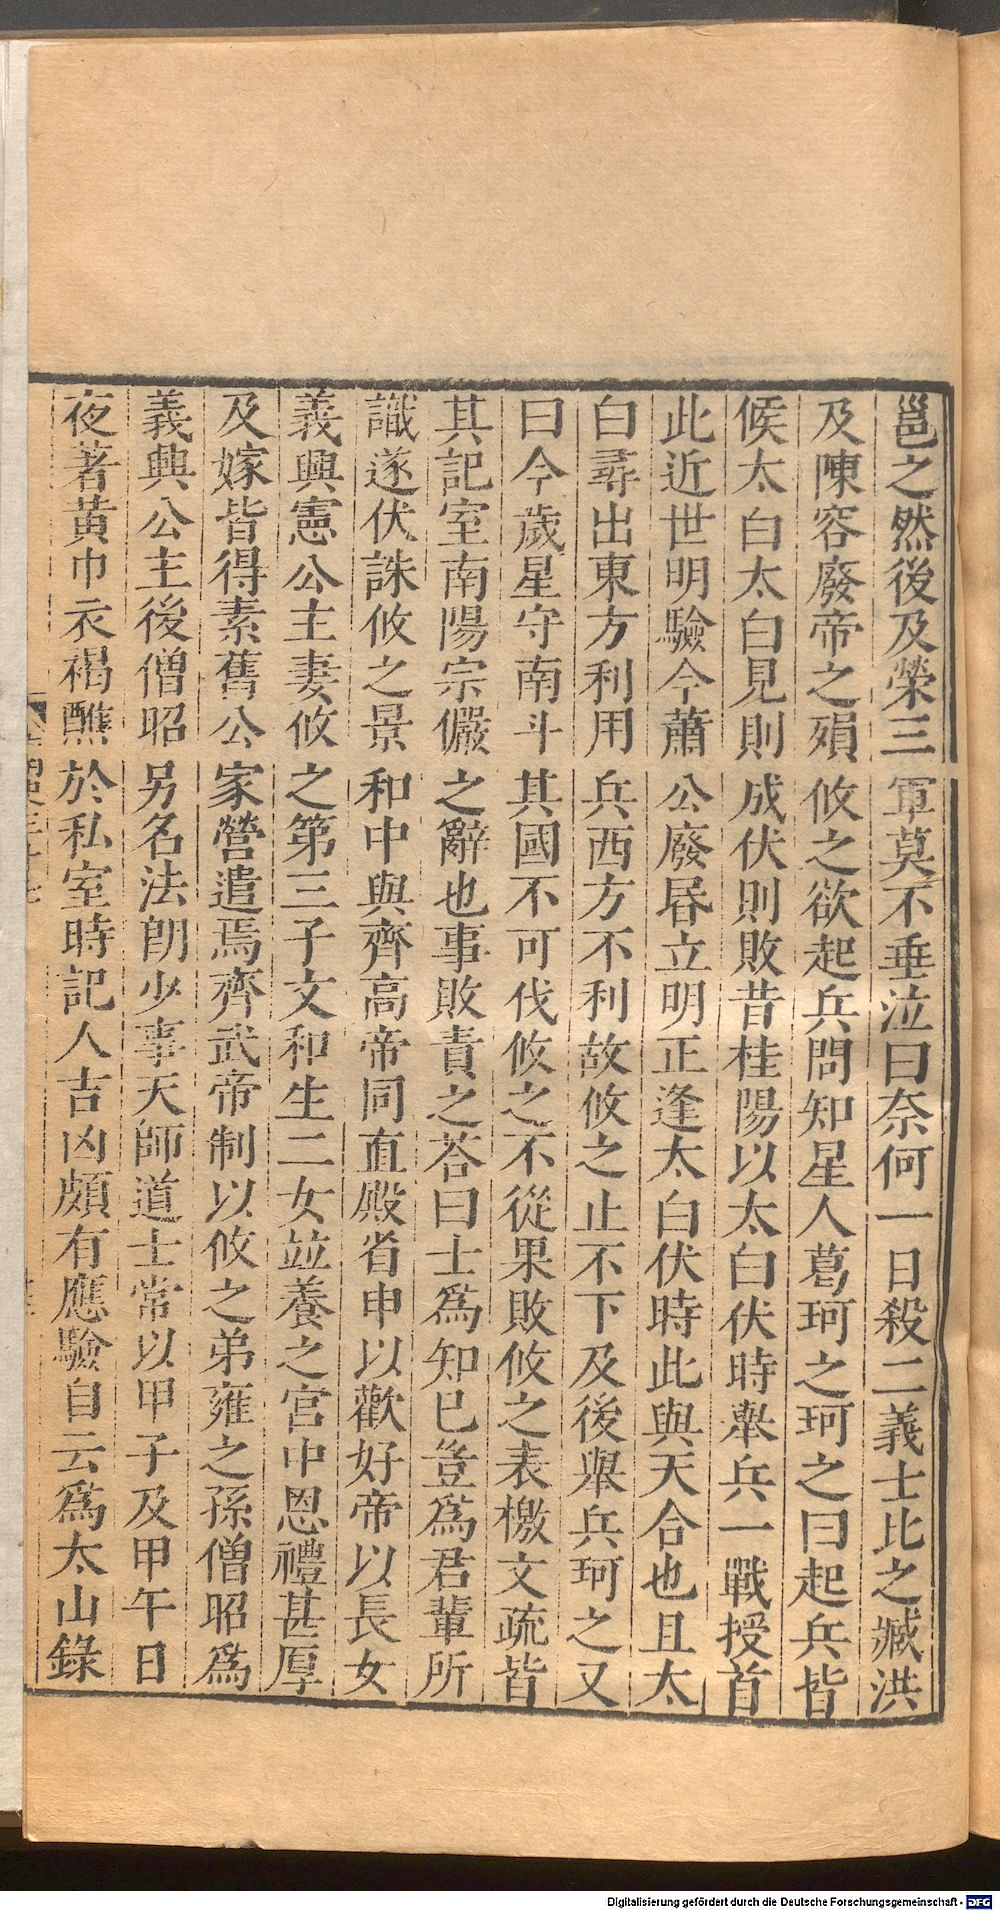 邕之然後及榮三軍莫不垂泣曰奈何一日殺二義士比之臧洪
及陳容廢帝之殞攸之欲起兵問知星人葛珂之珂之曰起兵皆
候太白太白見則成伏則敗昔桂陽以太白伏時舉兵一戰授首
此近世明驗今蕭公廢昬立明正逢太白伏時此與天合也且太
白尋出東方利用兵西方不利故攸之止不下及後舉兵珂之又
曰今歲星守南斗其國不可伐攸之不從果敗攸之表檄文疏皆
其記室南陽宗儼之辭也事敗責之荅曰士爲知己豈爲君輩所
識遂伏誅攸之景和中與齊高帝同直殿省申以歡好帝以長女
義興憲公主妻攸之第三子文和生二女並養之宮中恩禮甚厚
及嫁皆得素舊公家營遣焉齊武帝制以攸之弟雍之孫僧昭爲
義興公主後僧昭另名法朗少事天師道士常以甲子及甲午日
夜著黄巾衣褐醮於私室時記人吉凶頗有應驗自云爲太山錄
Digitalisierung gefördert durch die Deutsche Forschungsgemeinschaft - DFG